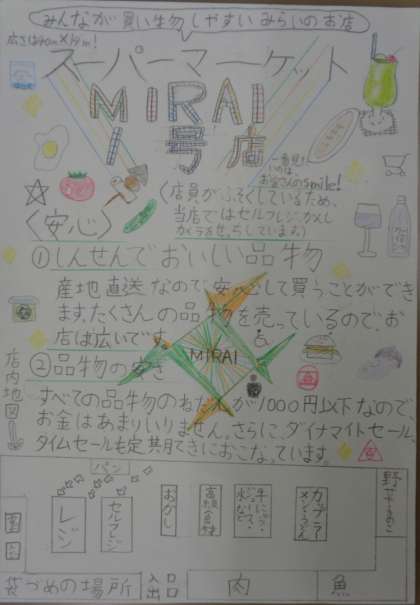 みんなが買い生物しやすいみらいのお店
広さは40m×19m!
スーパーマーケット
MIRAI
1号店
一番見
いのは、
お客さんのsmile!
(店員がふそくしているため、
当店ではセルフレジ、カメし
カメラをせっちしています。)
〈安心〉
①しんせんでおいしい品物
産地直送なので、安心して買うことができ
ます。たくさんの品物を売っているので、お
店は広いです。
MIRAI
②品物の安さ
すべての品物のねだんが1000円以下なので
お金はあまりいりません。さらに、ダイナマイトセール、
タイムセールも定期てきにおこなっています。
店内地図
パン
レジ
セルフレジ
おかし
高級食材
牛にゅう・
ジュース・
水など
カップラー
メン・うどん
野さい・きのこ
袋づめの場所
入口
出口
肉
魚